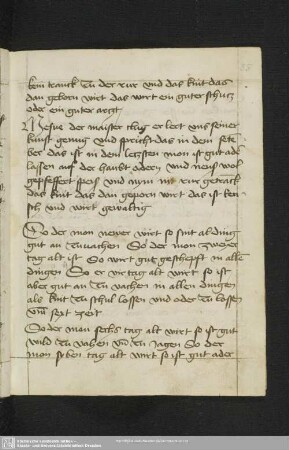 kein tranck Zu der rur vnd das kint das
dan geborn wirt das wirt ein guter schucz
oder ein guter arczt
der maister clug er lert vns seiner
kunst genug vnd spricht das in dem
ber das ist in dem leczsten mon ist gut ader
lassen auf der haubt odern vnd neus wol
gepfeffert speis vnd nym nit rur getrack
das kint das dan geporn wirt das ist keu-
sch vnd wirt gewaltig
So der mon newer wirt so sint al ding
gut an Zuuachen So der mon zweyer
tag alt ist So wirt gut geschepft in allen
dingen So er vir tag alt wirt so ist
aber gut an Zu vachen in allen dingen
als kint Zu schul lossen vnd oder Zu lossen
vnd sext zeit
So der mon sechs tag alt wirt so ist gut
wild Zu vahen vnd Zu Jagen So der
mon siben tag alt wirt so ist gut ader